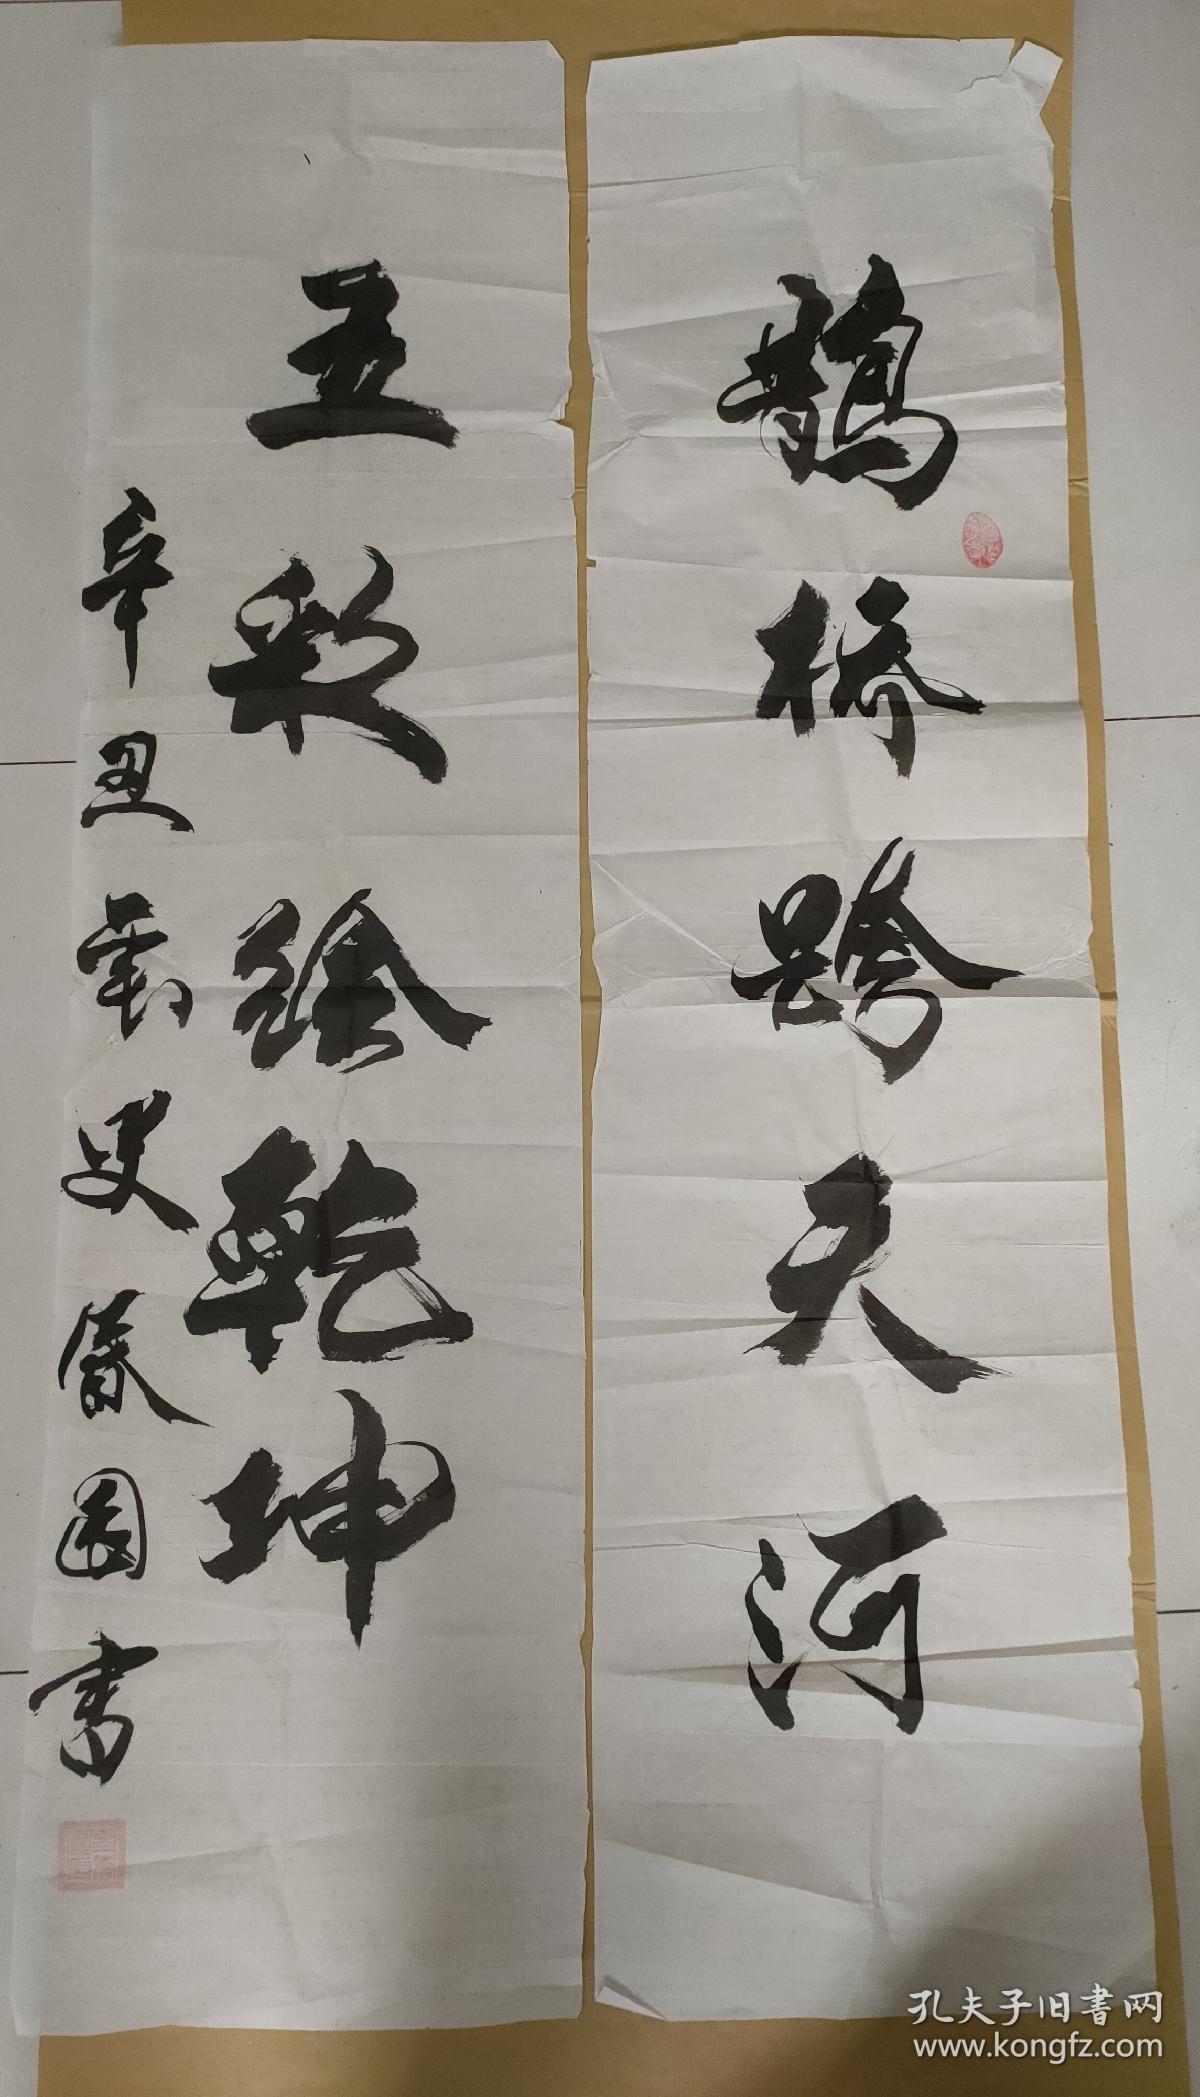 鹊桥跨天河
五彩绘乾坤
辛丑
园书
孔夫子旧书网
www.kongfz.com